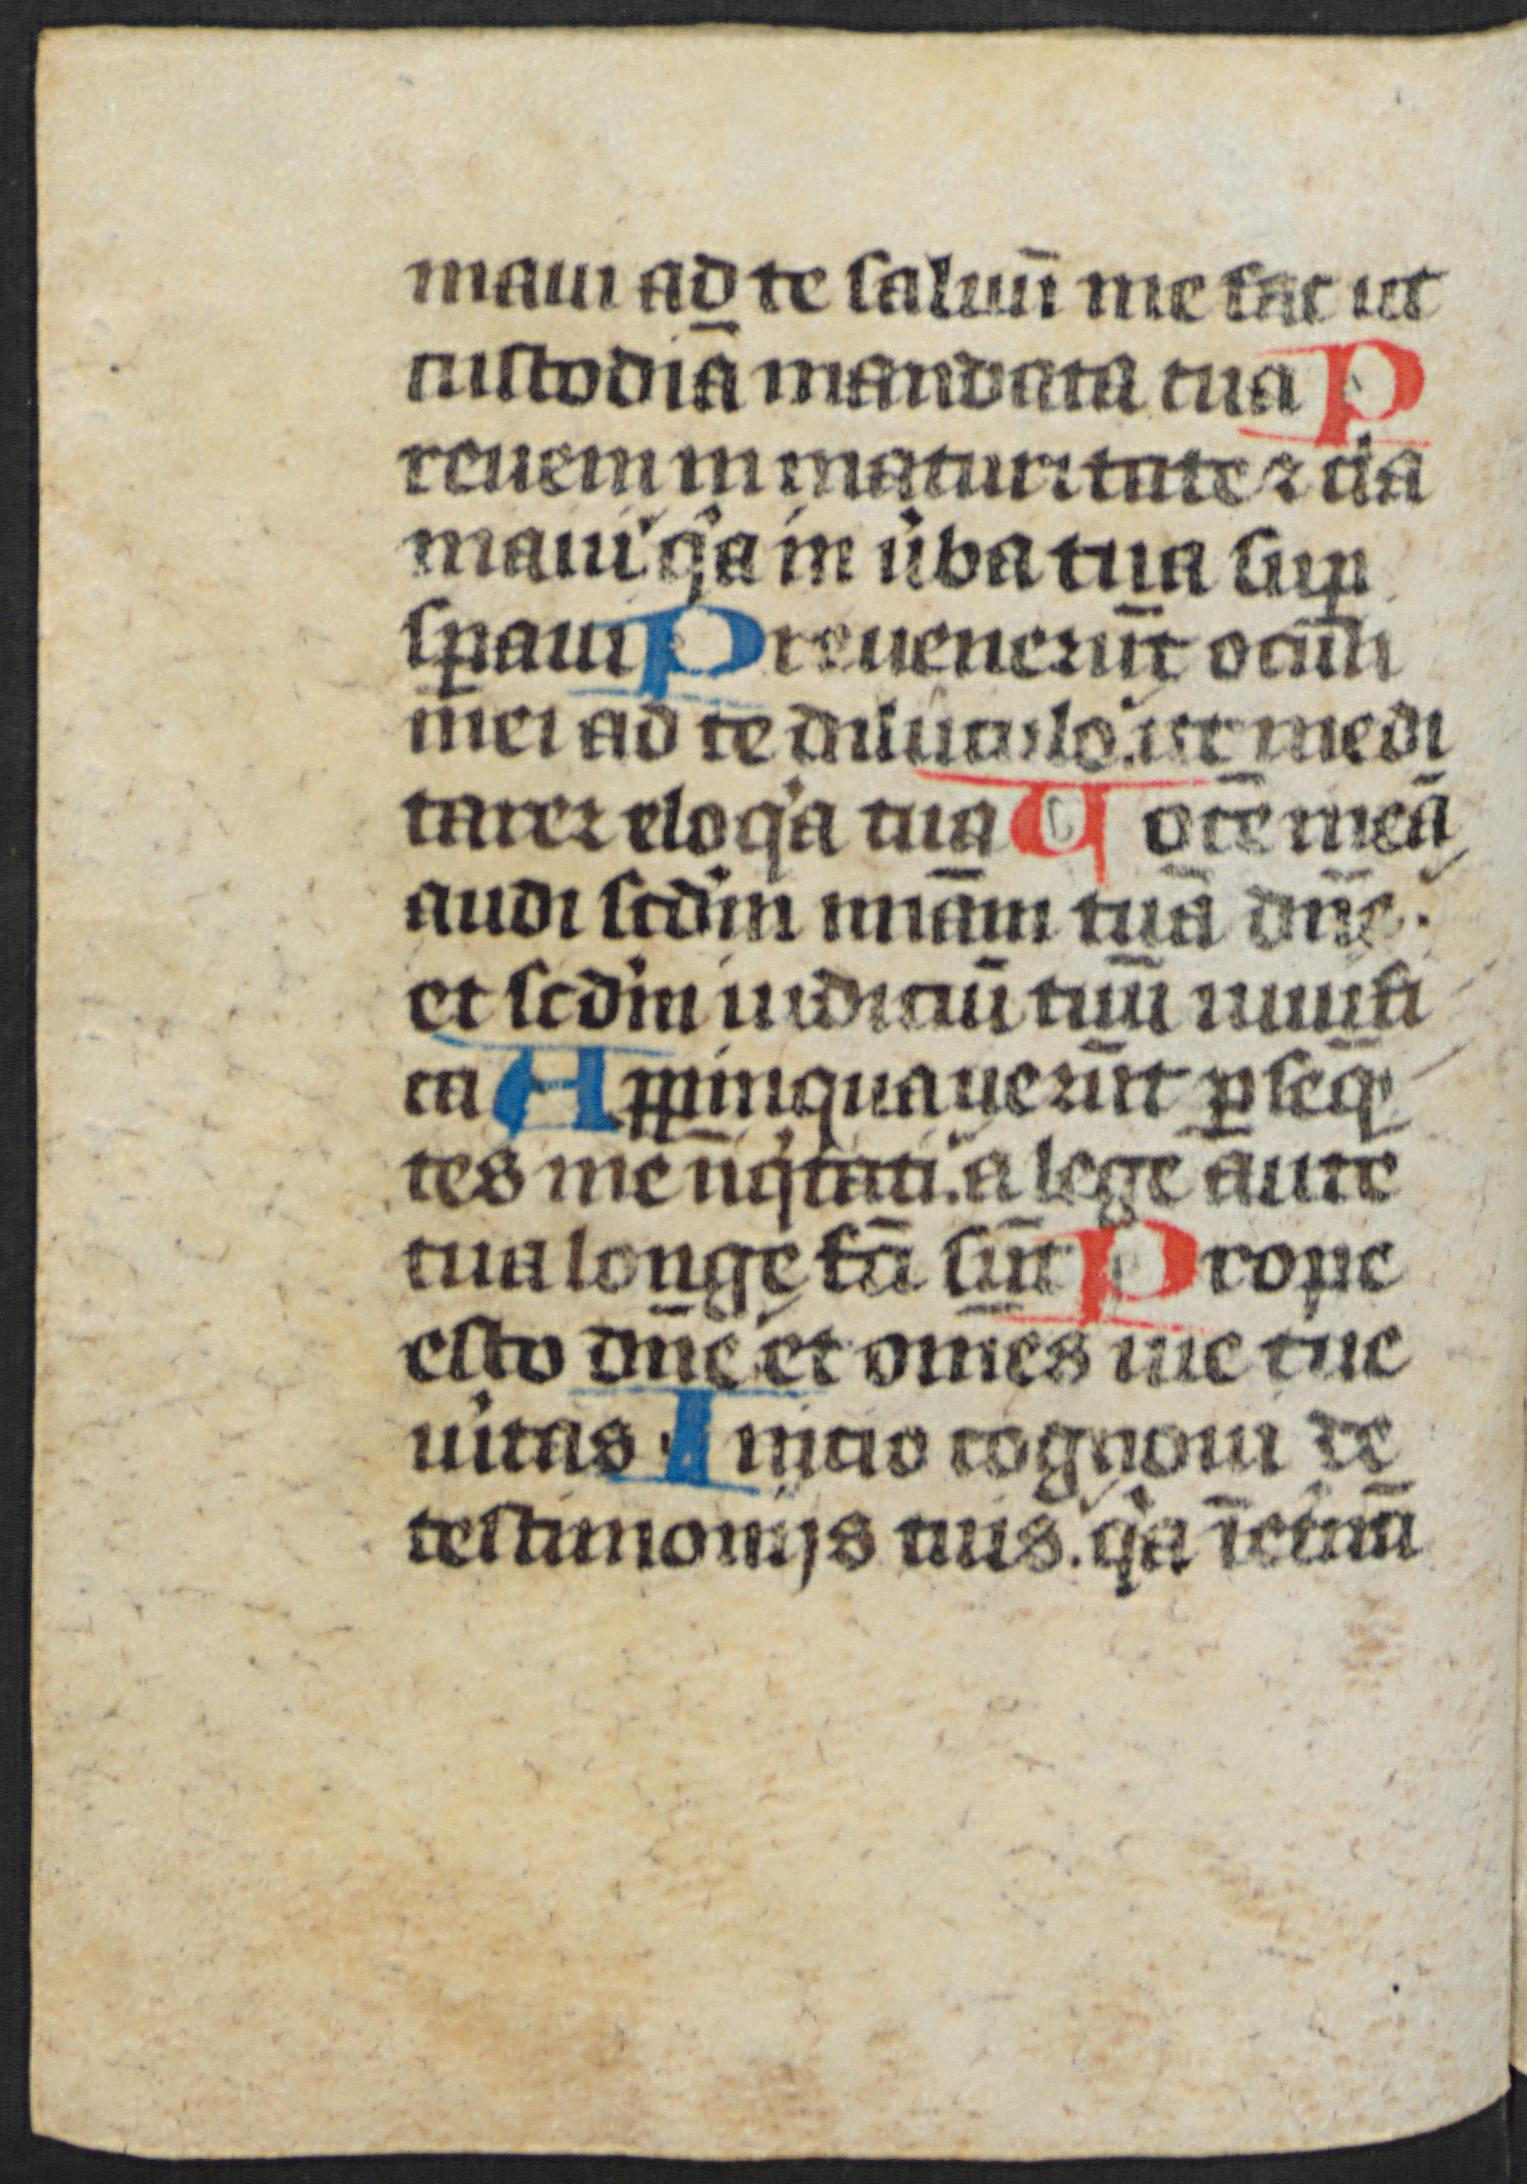 maui ad te saluū me fac ut
custodiā mandata tua P
reueni in maturitate ⁊ cla
maui q̇a in ủba tua suꝑ
sꝑaui Preuenerūt oculi
mei ad te diluculo. ut medi
tarer eloq̇a tua U ocē meā
audi scd̓m miām tuā dn̄e.
et scd̓m iudiciū tuū uiuifi
ca Aꝓpinquauerūt ꝑseq̄
tes me iniq̇tati. a lege autē
tua longe fcī sūt Prope
esto dn̄e et om̄es uie tue
ủitas Initio cognoui de
testimonijs tuis. q̇a ī etnū